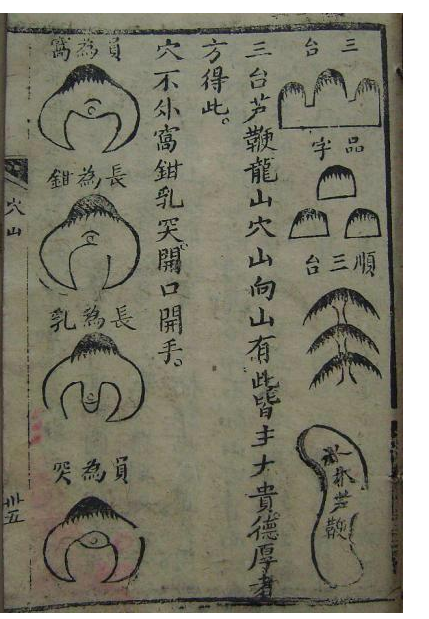 三台
品字
順三台
芦鞭
三台芦鞭龍山穴山向山有此皆主大貴德厚者
方得此。
穴不外窩鉗乳突開口開手。
員為窩
長為鉗
長為乳
員為突
穴山
卅五